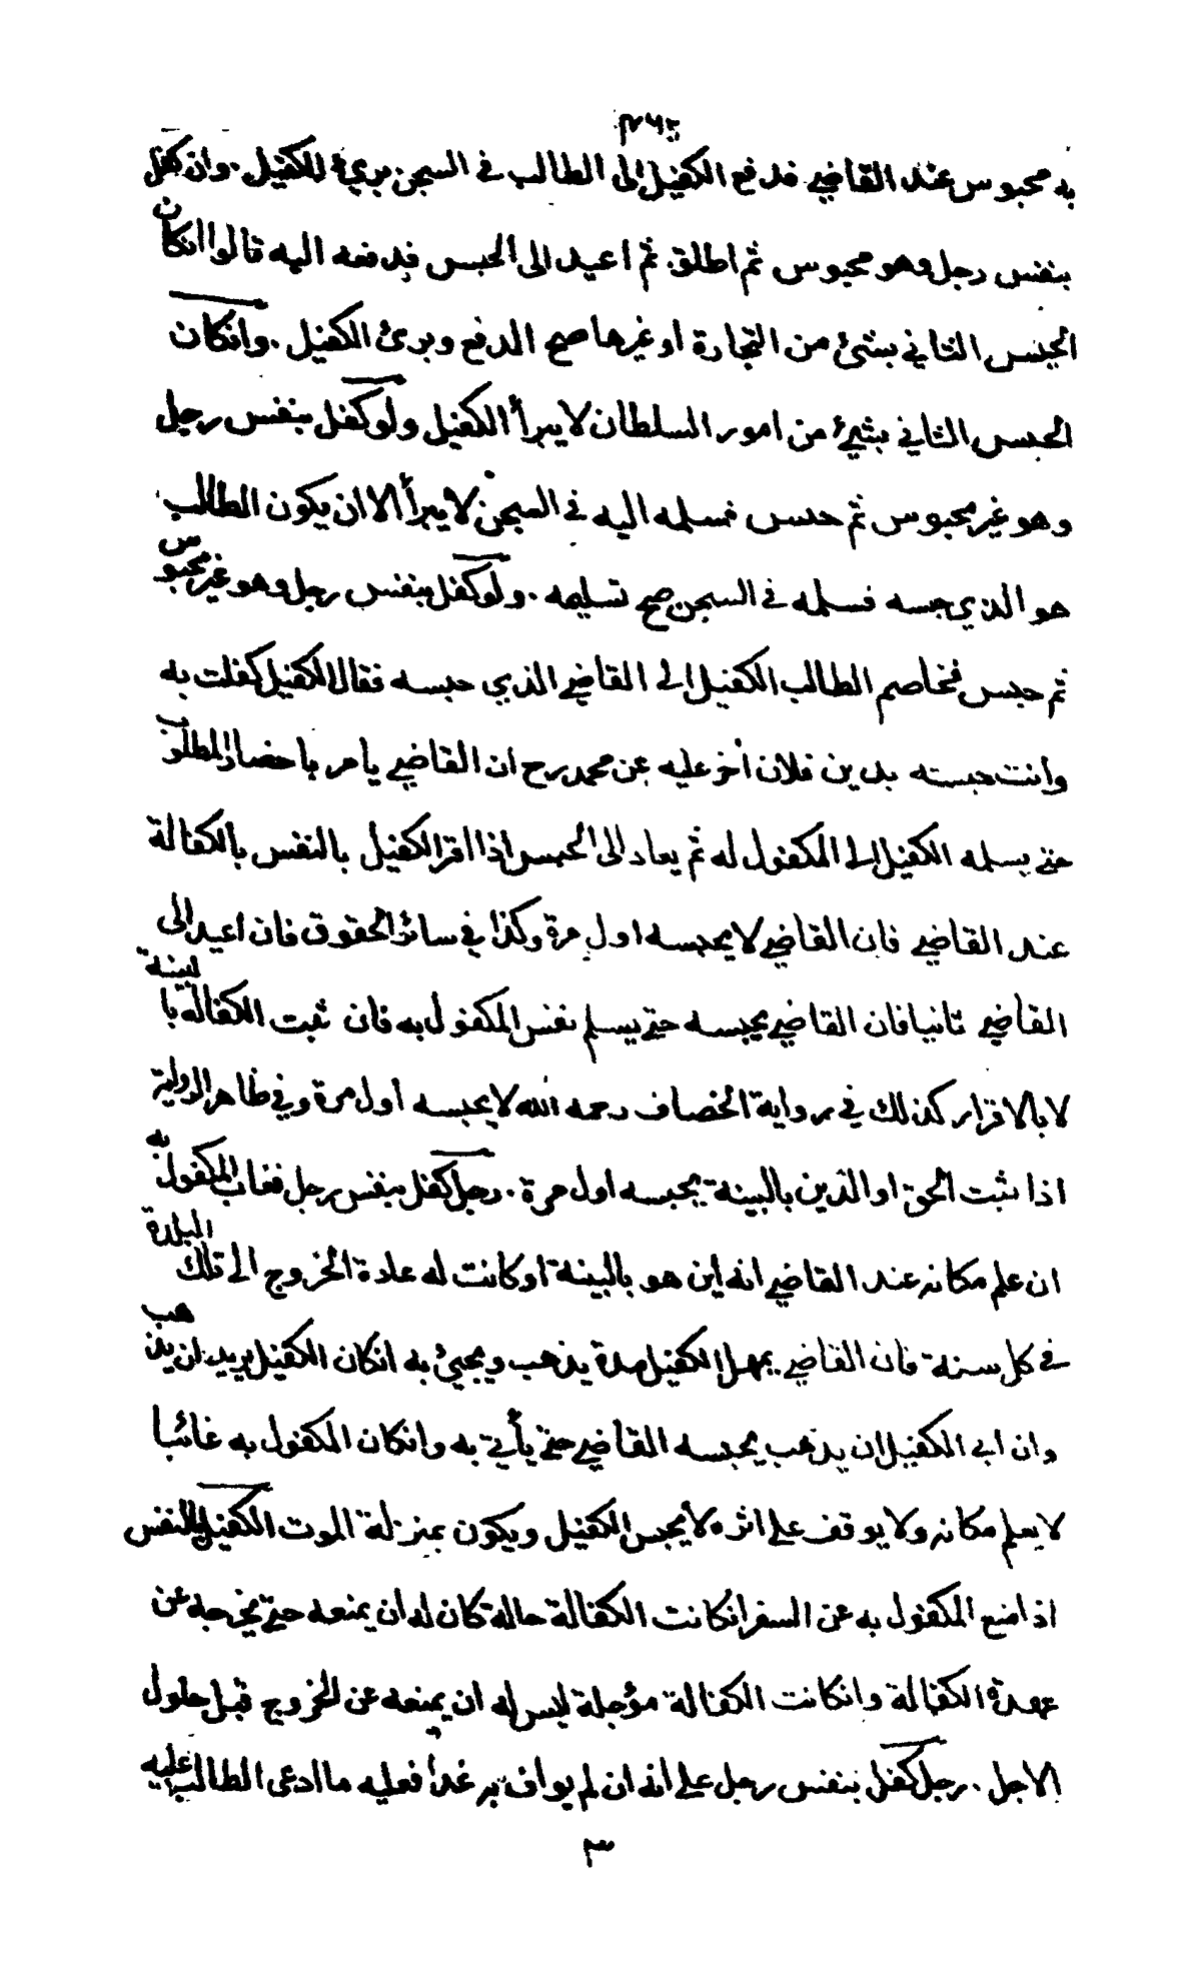 به محبوس عند القاضي فدفع الكفيل الى الطالب في السجن بريء الكفيل . وان كفل
بنفس رجل وهو محبوس ثم اطلق ثم اعيد الى الحبس فدفعه اليه قالوا انكان
الحبس الثاني بشئ من التجارة او غيرها صح الدفع وبرئ الكفيل . وانكان
الحبس الثاني بشيء من امور السلطان لا يبرأ الكفيل ولو كفل بنفس رجل
وهو غير محبوس ثم حبس فسلمه اليه في السجن لا يبرأ الا ان يكون الطالب
هو الذي حبسه فسلمه في السجن صح تسليمه . ولو كفل بنفس رجل وهو غير محبوس
ثم حبس فخاصم الطالب الكفيل الى القاضي الذي حبسه فقال الكفيل كفلت به
وانت حبسته بدين فلان أخر عليه عن محمد رح ان القاضي يامر باحضار المطلوب
حتى يسلمه الكفيل الى المكفول له ثم يعاد الى الحبس اذا اقر الكفيل بالنفس بالكفالة
عند القاضي فان القاضي لا يحبسه اول مرة وكذا في سائر الحقوق فان اعيد الى
القاضي ثانيا فان القاضي يحبسه حتى يسلم نفس المكفول به فان ثبت الكفالة بالبينة
لا بالاقرار كذلك في رواية الخصاف رحمه الله لا يحبسه أول مرة وفي ظاهر الرواية
اذا ثبت الحق او الدين بالبينة يحبسه اول مرة . رجل كفل بنفس رجل فغاب المكفول به
ان علم مكانه عند القاضي انه اين هو بالبينة او كانت له عادة الخروج الى تلك البلدة
في كل سنة فان القاضي يمهل الكفيل مدة يذهب ويجيئ به انكان الكفيل يريد ان يذهب
وان ابى الكفيل ان يذهب يحبسه القاضي حتى يأتي به وانكان المكفول به غائبا
لا يعلم مكانه ولا يوقف على اثره لا يحبس الكفيل ويكون بمنزلة الموت الكفيل بالنفس
اذا منع المكفول به عن السفر انكانت الكفالة حالة كان له ان يمنعه حتى يخرجه عن
عهدة الكفالة وانكانت الكفالة مؤجلة ليس له ان يمنعه عن الخروج قبل حلول
الاجل . رجل كفل بنفس رجل على انه ان لم يواف به غدا فعليه ما ادعى الطالب عليه